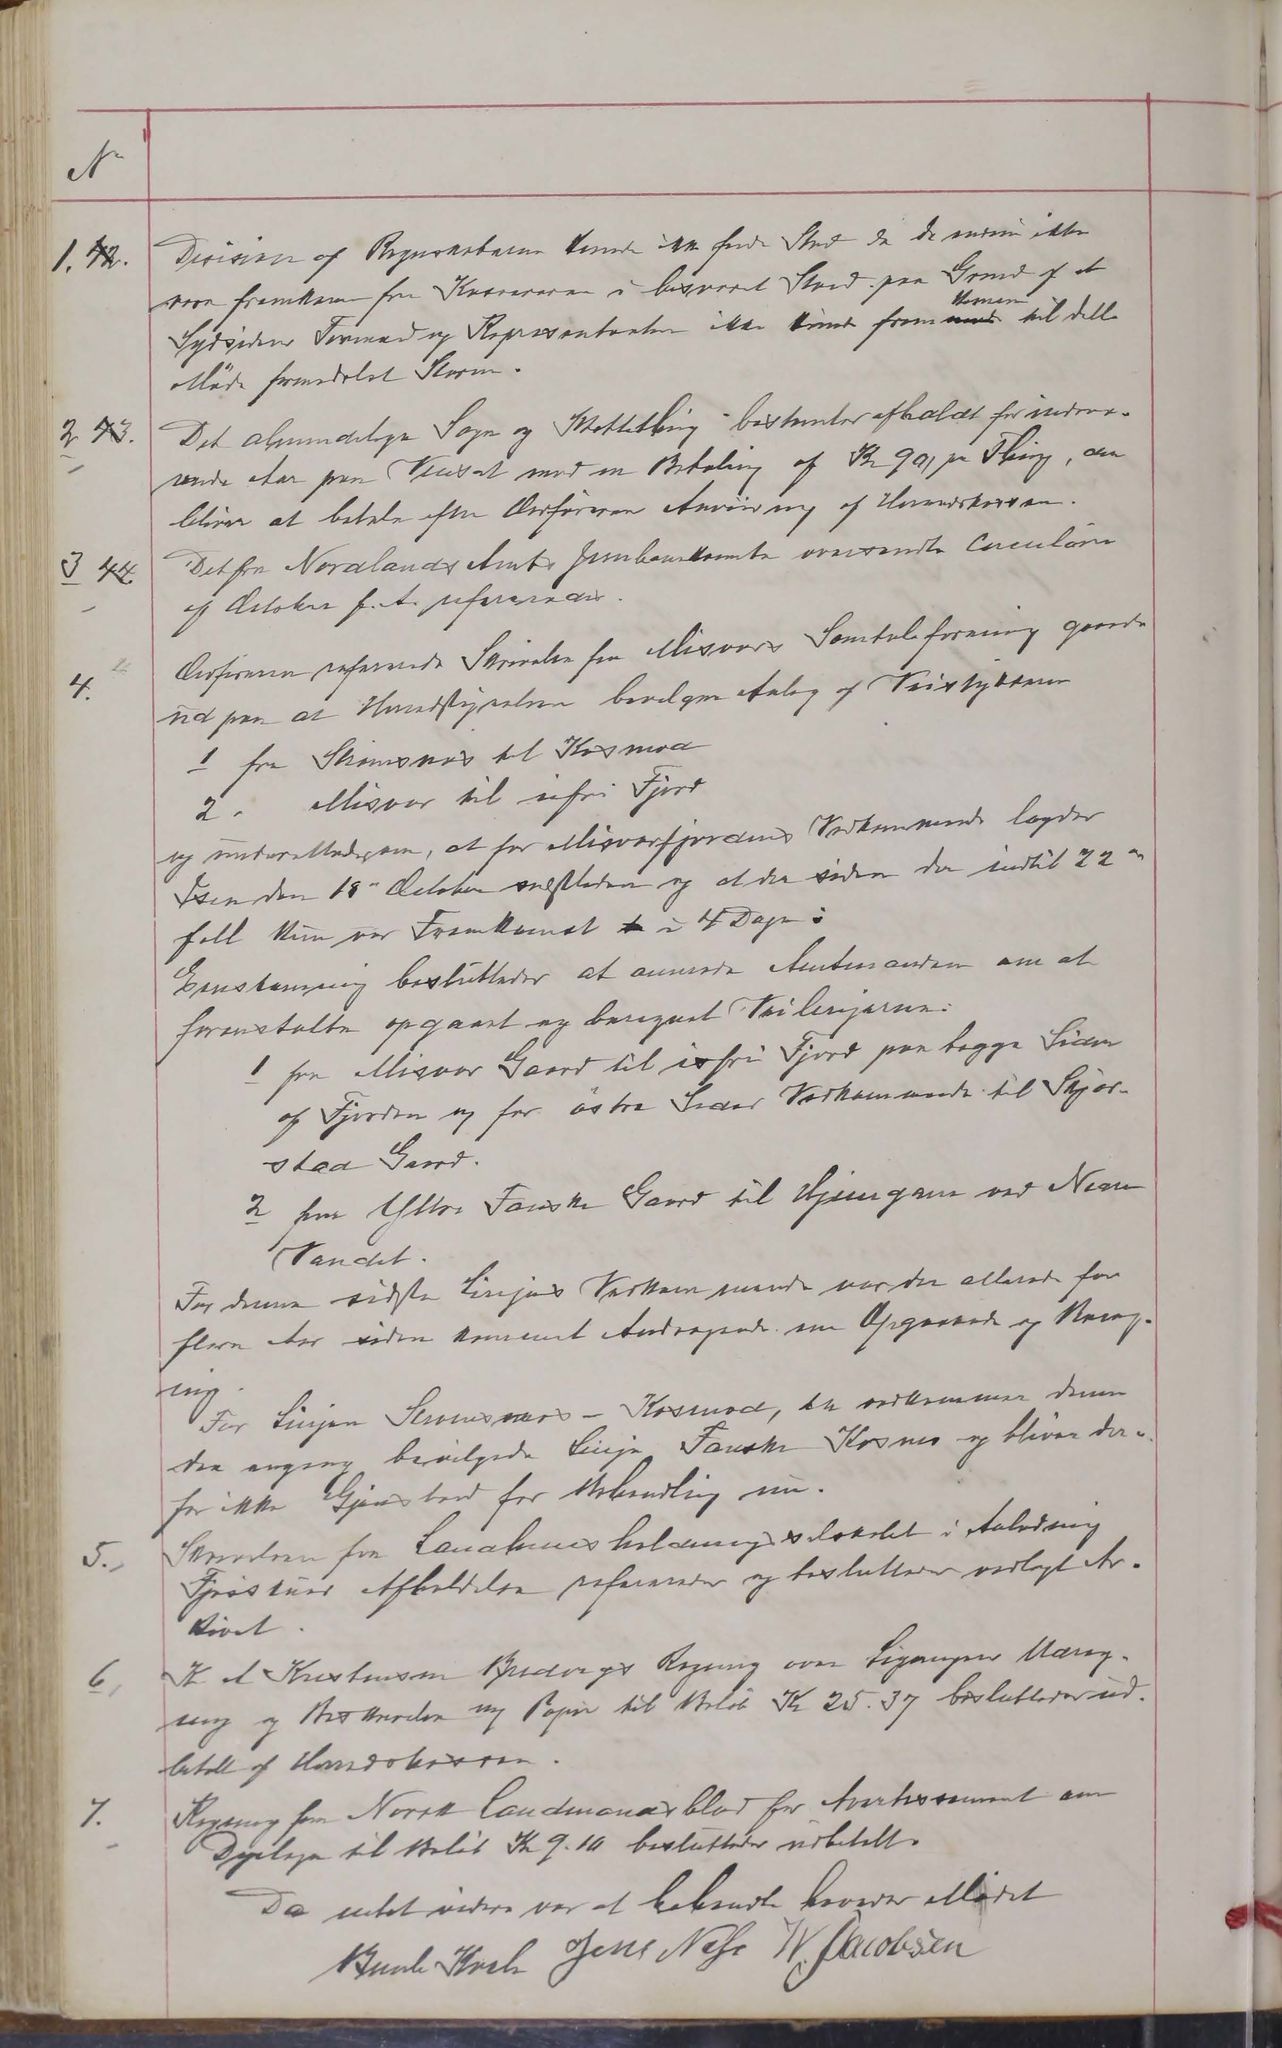 No
1. 42. Decision af Regnskaberne kunde ikke finde Sted da de endnu ikke
vare fremkomne fra Revisorerne i besvaret Stand paa Grund af at
Sydsidens Formænd og Repræsentanter ikke kunde frem komme til dette
Møde formedelst Storm.
2 43. Det almindelige Sogn og Skattething bestemtes afholdt for indeva-
rende Aar paa Venset mod en Betaling af Kr 9 pr Thing, som
bliver at betale efter Ordførerens Anvisning af Herredskassen.
3 44 Det fra Nordlands Amts Jernbanekomite oversendte Circulære
af October f. A. refereredes.
4. Ordføreren refererede Skrivelse fra Misvær Samtaleforening gaaende
ud paa at Herredstyrelsen bevilger Anlæg af Veistykkerne
1 fra Strømsnes til Kosmod
2 " Misvær til isfri Fjord
og underrettedes om, at for Misværfjordens Vedkommende lagdes
Isen den 18de October sidstleden og at der siden den indtil 22de
 kun var Fremkomst i 4 Dage:
Enstemmig besluttedes at anmode Amtmanden om at
foranstalte opgaaet og beregnet Veilinjerne:
1 fra Misvær Gaard til isfri Fjord paa begge Sider
af Fjorden og for østre Sides Vedkommende til Skjer-
stad Gaard.
2 fra Yttre Fauske Gaard til Hjemgam ved Nedre
Vandet.
For denne sidste Linjes Vedkommende var der allerede for
flere Aar siden kommet Andragende om Opgaaende og Bereg-
ning.
For Linjen Strømsnes - Kosmod, da vedkommer denne
den engang bevilgede Linje Fauske Kosmo og bliver der-
for ikke Gjenstand for Behandling nu.
5. Skrivelsen fra Landhusholdningsselskabet i Anledning
Afholdelse refereredes og besluttedes vedlagt Ar-
kivet.
6. K A Kristensen Bredvegs Regning over Ligningens Udreg-
ning og Beskrivelse og Papir til Beløb Kr 25.37 besluttedes ud-
betalt af Herredskassen.
7. Regning fra Norsk Landmandsblad for Avertissement om
Dyrlæge til Beløb Kr 9.10 besluttedes udbetalt.
Da intet videre var at behandle hævedes Mødet
Bernh Koch Jens Næss W. Jacobsen